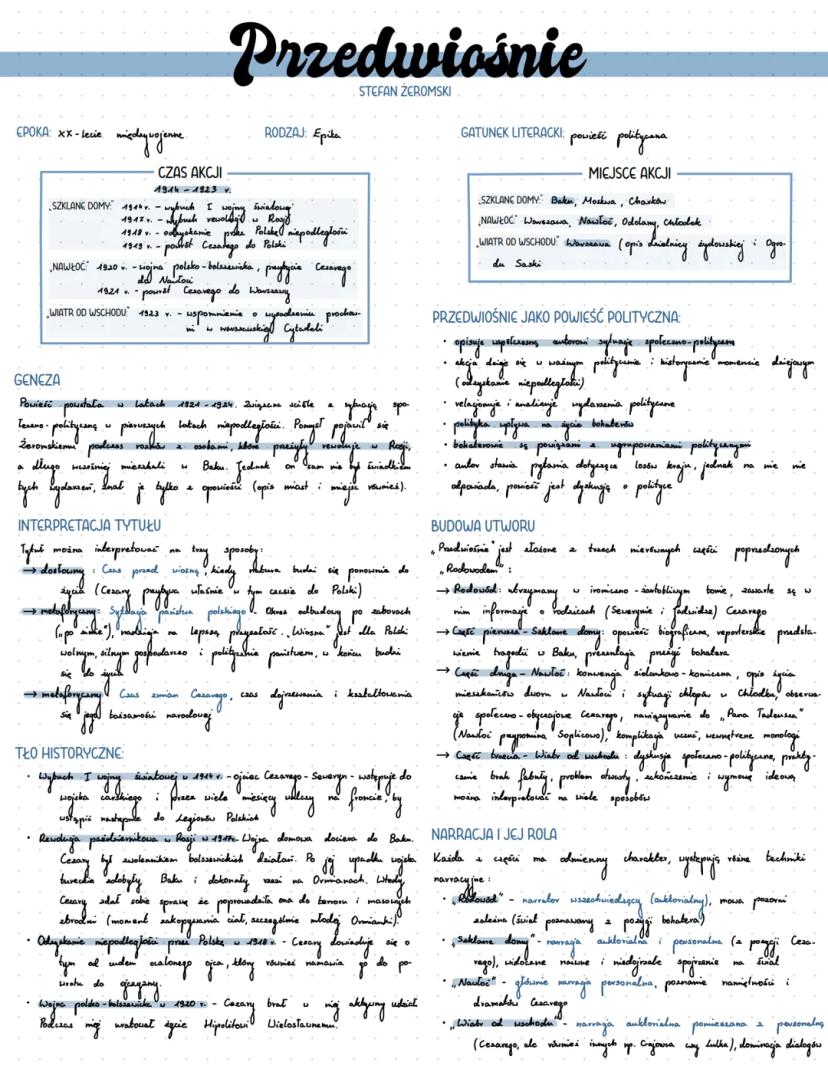 Przedwiośnie
STEFAN ŻEROMSKI
EPOKA: XX-lecie międzywojenne
RODZAJ: Epika
GATUNEK LITERACKI: powieść polityczna
CZAS AKCJI
1914 – 1923 r.
„SZKLANE DOMY:" 1914 r. – wybuch I wojny światowej
1917 r. – wybuch rewolucji w Rosji
1918 r. – odzyskanie przez Polskę niepodległości
1919 r. – powrót Cezarego do Polski
„NAWŁOĆ:" 1920 r. – wojna polsko-bolszewicka, przybycie Cezarego
do Nawłoci
1921 r. – powrót Cezarego do Warszawy
„WIATR OD WSCHODU:" 1923 r. – wspomnienie o wysadzeniu prochow-
ni w warszawskiej Cytadeli
MIEJSCE AKCJI
„SZKLANE DOMY:" Baku, Moskwa, Charków
„NAWŁOĆ:" Warszawa, Nawłoć, Odolany, Chłodek
„WIATR OD WSCHODU:" Warszawa (opis dzielnicy żydowskiej i Ogro-
du Saski
GENEZA
Powieść powstała w latach 1921 – 1924. Związana ściśle z sytuacją spo-
łeczno-polityczną w pierwszych latach niepodległości. Pomysł pojawił się
Żeromskiemu podczas rozmów z osobami, które przeżyły rewolucję w Rosji,
a długo wcześniej mieszkali w Baku. Jednak on sam nie był świadkiem
tych wydarzeń, znał je tylko z opowieści (opis miast i miejsc również).
INTERPRETACJA TYTUŁU
Tytuł można interpretować na trzy sposoby:
→ dosłowny: Czas przed wiosną, kiedy natura budzi się ponownie do
życia (Cezary przybywa właśnie w tym czasie do Polski)
→ metaforyczny: Sytuacja państwa polskiego. Okres odbudowy po zaborach
(„po zimie"), nadzieja na lepszą przyszłość. „Wiosna" jest dla Polski
wolnym, silnym gospodarczo i politycznie państwem, w końcu budzi
się do życia
→ metaforyczny: Czas zmian Cezarego, czas dojrzewania i kształtowania
się jego tożsamości narodowej
TŁO HISTORYCZNE:
• Wybuch I wojny światowej w 1914 r. – ojciec Cezarego – Seweryn – wstępuje do
wojska carskiego i przez wiele miesięcy walczy na froncie, by
wstąpić następnie do Legionów Polskich
• Rewolucja październikowa w Rosji w 1917r. Wojna domowa dociera do Baku.
Cezary był zwolennikiem bolszewickich działań. Po jej upadku wojska
tureckie zdobyły Baku i dokonały rzezi na Ormianach. Wtedy
Cezary zdał sobie sprawę że poprowadziła ona do terroru i masowych
zbrodni (moment zakopywania ciał, szczególnie młodej Ormianki).
• Odzyskanie niepodległości przez Polskę w 1918 r. – Cezary dowiaduje się o
tym od cudem ocalonego ojca, który również namawia go do po-
wrotu do ojczyzny.
• Wojna polsko-bolszewicka w 1920 r. – Cezary brał w niej aktywny udział.
Podczas niej uratował życie Hipolitowi Wielosławskiemu.
PRZEDWIOŚNIE JAKO POWIEŚĆ POLITYCZNA:
• opisuje współczesną autorowi sytuację społeczno-polityczną
• akcja dzieje się w ważnym politycznie i historycznie momencie dziejowym
(odzyskanie niepodległości)
• relacjonuje i analizuje wydarzenia polityczne
• polityka wpływa na życie bohaterów
• bohaterowie są powiązani z ugrupowaniami politycznymi
• autor stawia pytania dotyczące losów kraju, jednak na nie nie
odpowiada, powieść jest dyskusją o polityce
BUDOWA UTWORU
„Przedwiośnie" jest złożone z trzech nierównych części poprzedzonych
„Rodowodem":
→ Rodowód: utrzymany w ironiczno-żartobliwym tonie, zawarte są w
nim informacje o rodzicach (Sewerynie i Jadwidze) Cezarego
→ Część pierwsza – Szklane domy: opowieść biograficzna, reporterskie przedsta-
wienie tragedii w Baku, prezentacja przeżyć bohatera
→ Część druga – Nawłoć: konwencja sielankowo-komiczna, opis życia
mieszkańców dworu w Nawłoci i sytuacji chłopów w Chłodku, obserwa-
cje społeczno-obyczajowe Cezarego, nawiązywanie do „Pana Tadeusza"
(Nawłoć przypomina Soplicowo), komplikacja uczuć, wewnętrzne monologi
→ Część trzecia – Wiatr od wschodu: dyskusja społeczno-polityczna, prakty-
cznie brak fabuły, problem otwarty, zakończenie i wymowę ideową
można interpretować na wiele sposobów
NARRACJA I JEJ ROLA
Każda z części ma odmienny charakter, występują różne techniki
narracyjne:
• „Rodowód" – narrator wszechwiedzący (auktorialny), mowa pozornie
zależna (świat poznawany z pozycji bohatera)
• „Szklane domy" – narracja auktorialna i personalna (z pozycji Ceza-
rego), widoczne naiwne i niedojrzałe spojrzenie na świat
• „Nawłoć" – głównie narracja personalna, poznanie namiętności i
dramatów Cezarego
• „Wiatr od wschodu" – narracja auktorialna pomieszana z personalną
(Cezarego, ale również innych np. Gajowca czy Lulka), dominacja dialogów